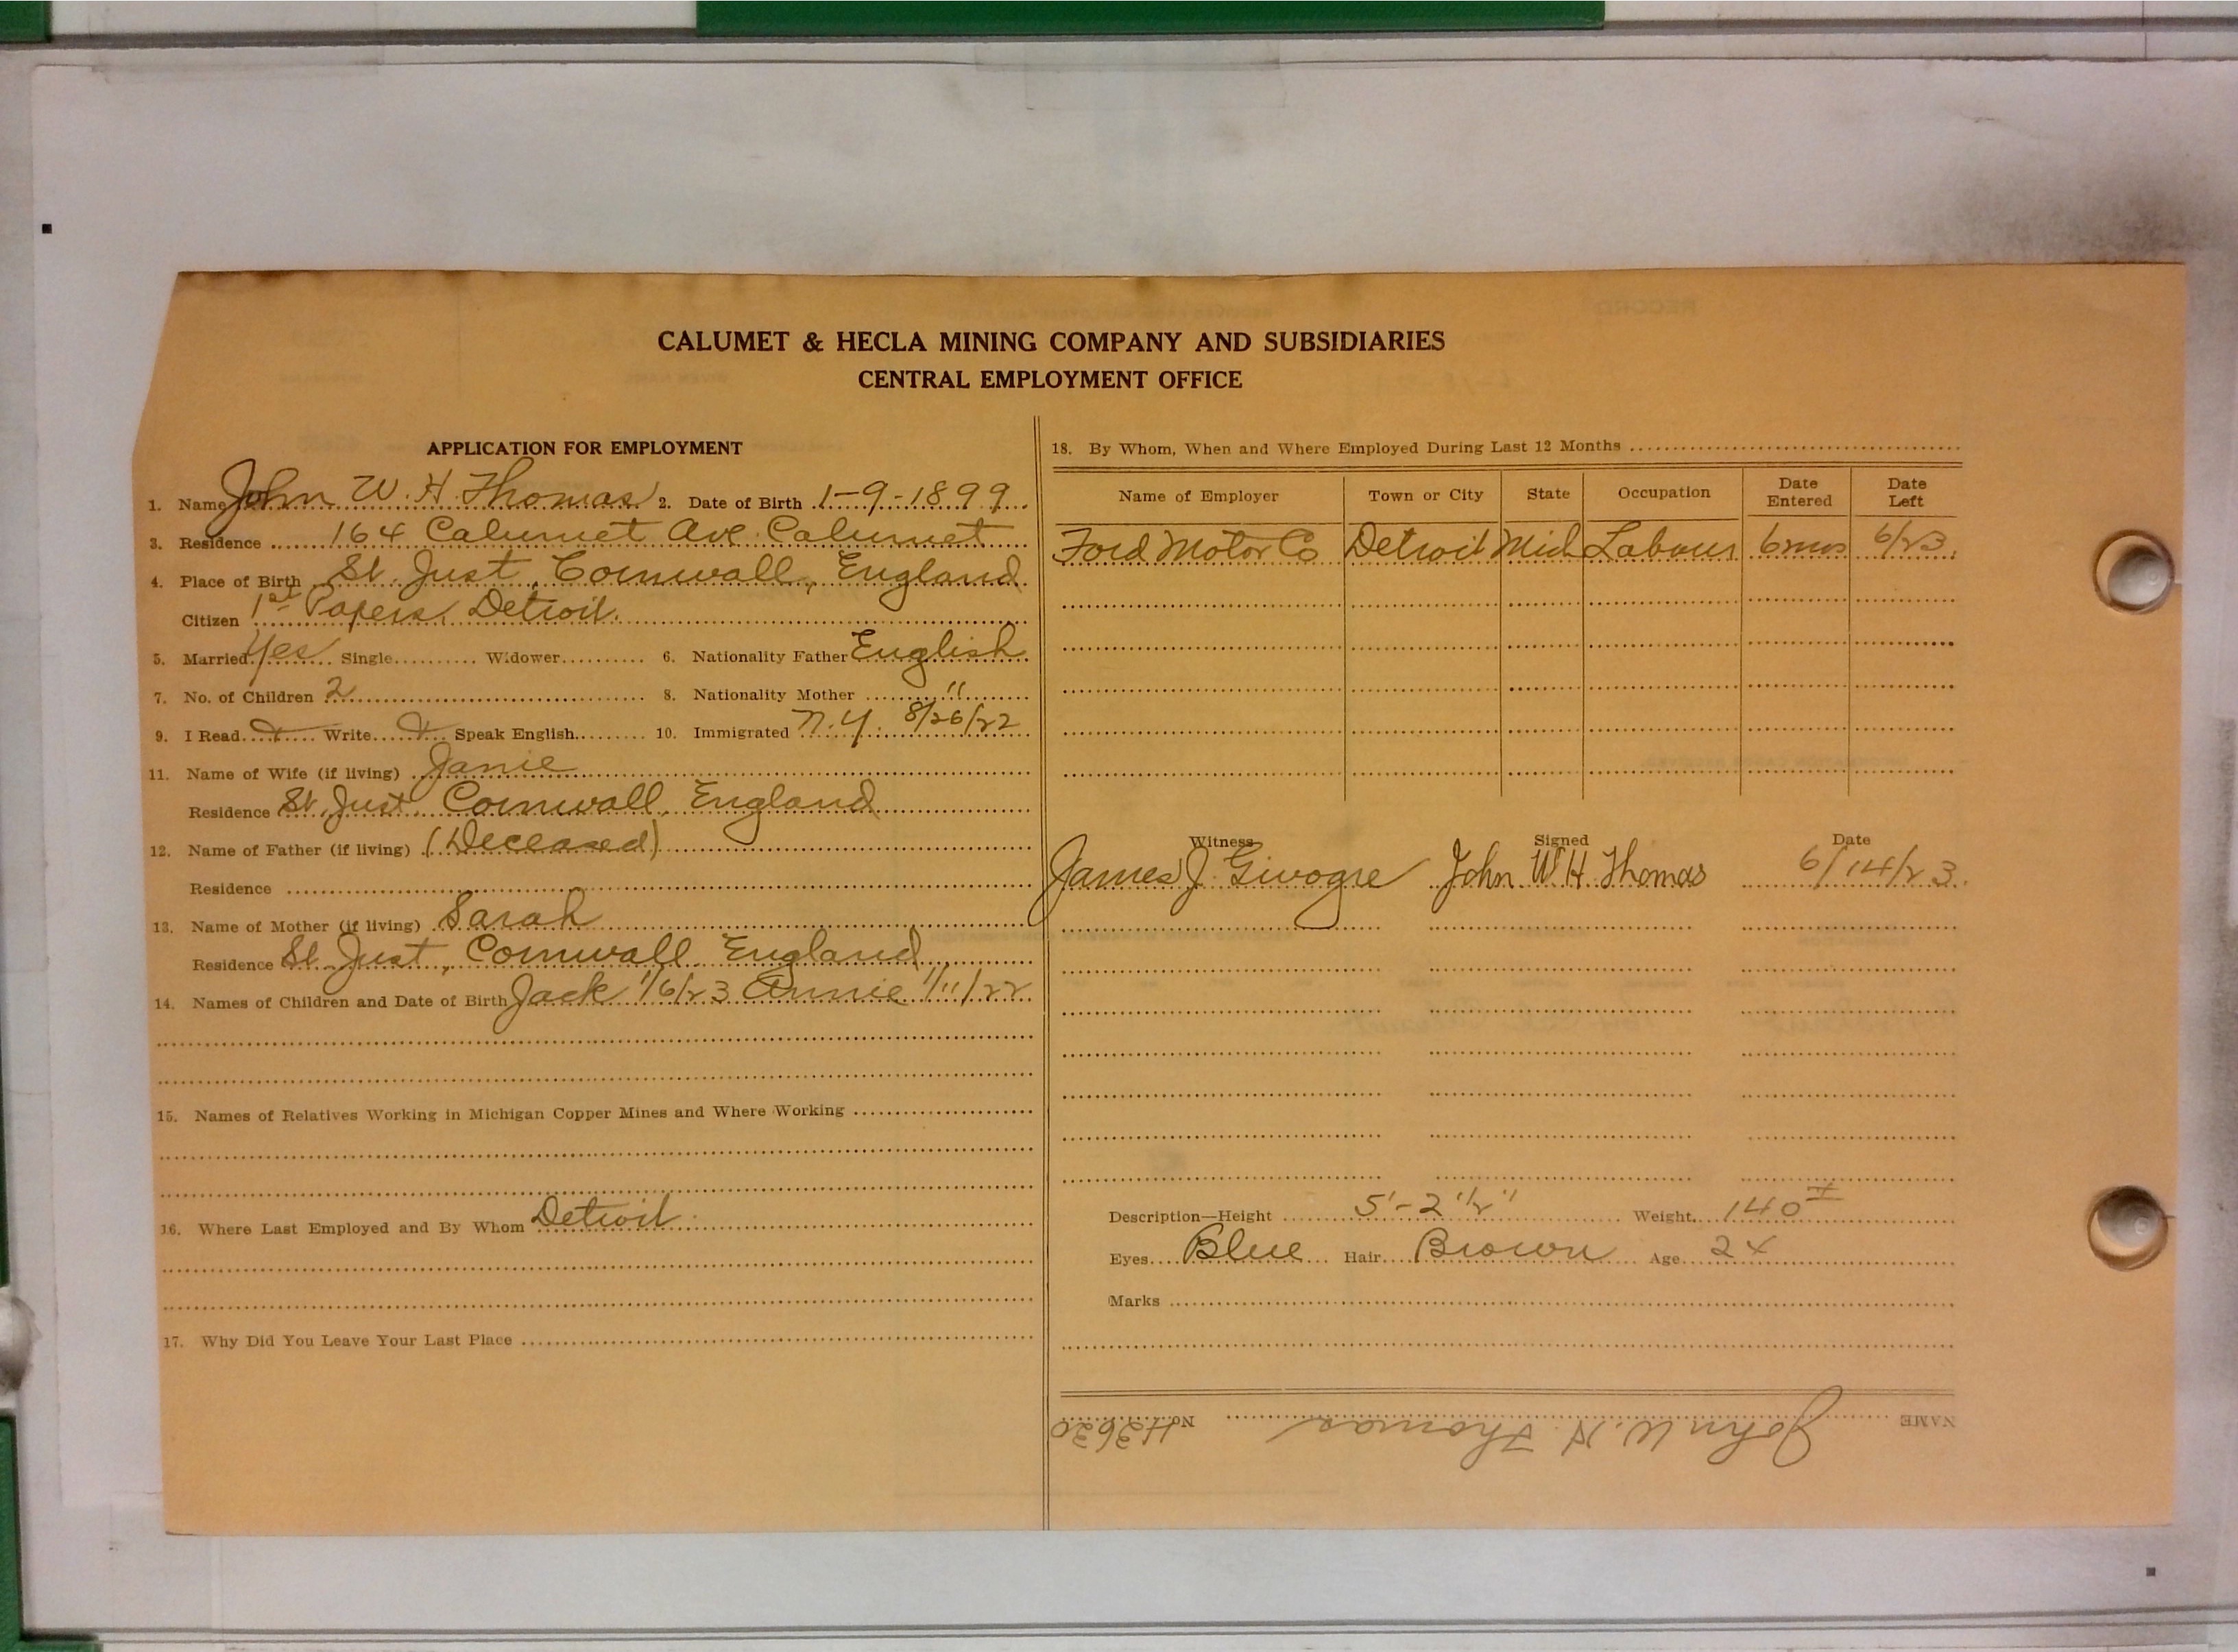 CALUMET & HECLA MINING COMPANY AND SUBSIDIARIES
CENTRAL EMPLOYMENT OFFICE
APPLICATION FOR EMPLOYMENT
1. Name John W. H. Thomas 2. Date of Birth 1-9-1899
3. Residence 164 Calumet Ave. Calumet
4. Place of Birth St. Just, Cornwall, England
Citizen 1st Papers, Detroit.
5. Married Yes Single Widower 6. Nationality Father English
7. No. of Children 2 8. Nationality Mother "
9. I Read Write Speak English 10. Immigrated N.Y. 8/26/22
11. Name of Wife (if living) Janie
Residence St. Just, Cornwall, England
12. Name of Father (if living) (Deceased)
Residence
13. Name of Mother (if living) Sarah
Residence St. Just, Cornwall, England
14. Names of Children and Date of Birth Jack 1/6/23 Annie 1/11/22
15. Names of Relatives Working in Michigan Copper Mines and Where Working
16. Where Last Employed and By Whom Detroit
17. Why Did You Leave Your Last Place
18. By Whom, When and Where Employed During Last 12 Months
Name of Employer Town or City State Occupation Date Entered Date Left
Ford Motor Co Detroit Mich Labour 6mos 6/23.
Witness Signed Date
James J. John W H Thomas 6/14/23.
Description—Height 5'-2 1/2" Weight 140#
Eyes Blue Hair Brown Age 24
Marks
NAME John W. H. Thomas No. H3620